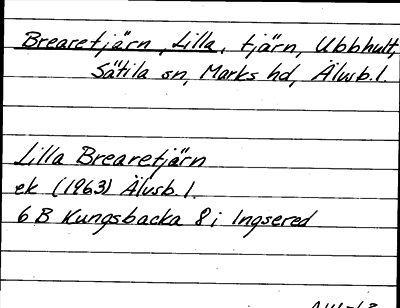 Brearetjärn, Lilla, tjärn, Ubbhult,
Sätila sn, Marks hd, Älvsb. l.
Lilla Brearetjärn
ek (1963) Älvsb. l.
6 B Kungsbacka 8 i Ingsered